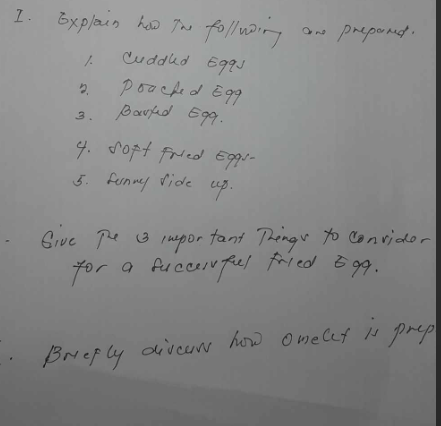 I. Explain how The following are prepared.
1. Cuddled Eggs
2. Poached Egg
3. Basted Egg.
4. Soft Fried Eggs-
5. Sunny Side up.
Give The 3 important Things to Consider
for a Successful Fried Egg.
Briefly discuss how omelet is prep